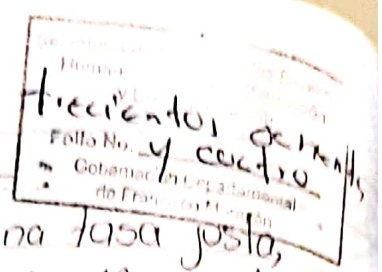 trecientos ochenta
Folio No. y cuatro
Gobernación Departamental
de Francisco Morazán
na Tasa justa,